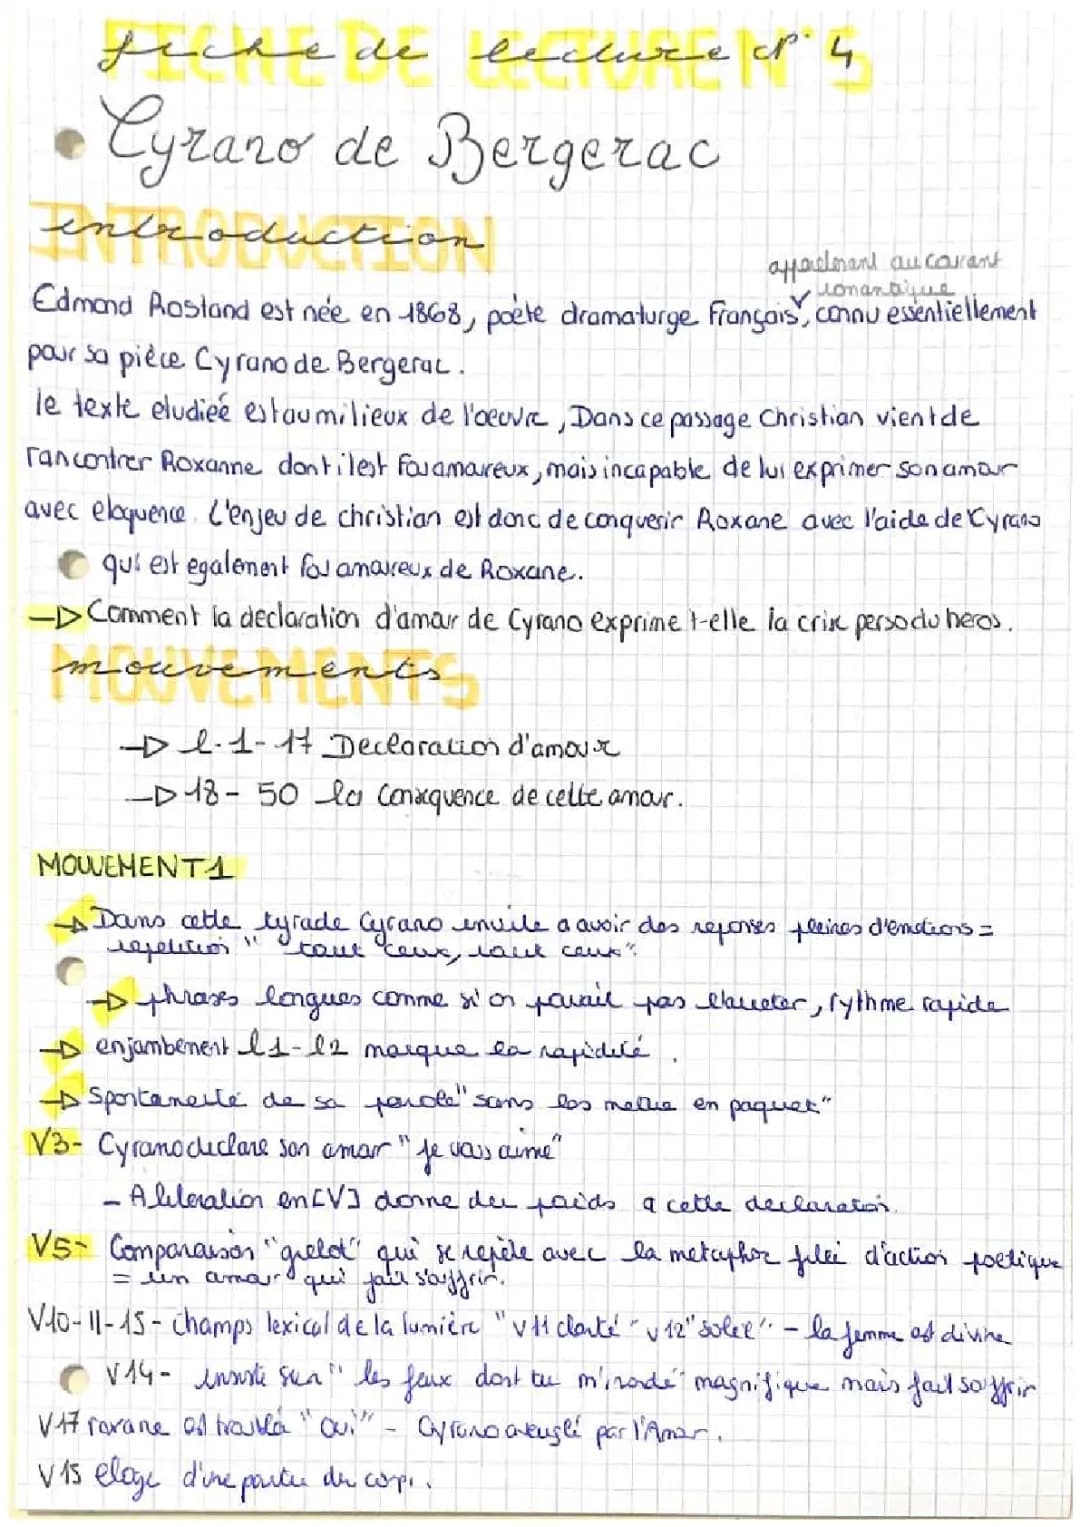 fiche de lecture N° 4
FICHE DE LECTURE N°5
• Cyrano de Bergerac
introduction
INTRODUCTION
appartenant au courant
romantique
Edmond Rostand est née en 1868, poète dramaturge Français, connu essentiellement
pour sa pièce Cyrano de Bergerac.
le texte etudieé est au milieux de l'oeuvre, Dans ce passage Christian vient de
rancontrer Roxanne dont il est fou amoureux, mais incapable de lui exprimer son amour
avec eloquence. L'enjeu de christian est donc de conquerir Roxane avec l'aide de Cyrano
qui est egalement fou amoureux de Roxane.
→ Comment la declaration d'amour de Cyrano exprime t-elle la crise perso du heros.
mouvements
MOUVEMENTS
→ l.1-17 Declaration d'amour
→ 18-50 la consequence de cette amour.
MOUVEMENT 1
→ Dans cette tyrade Cyrano invite a avoir des reponses pleines d'emotions =
repetition " tout ceux, tout ceux".
→ phrases longues comme si on pouvait pas l'arreter, rythme rapide
→ enjambement l1-l2 marque la rapidité.
→ Spontaneité de sa parole "sans les mettre en paquet"
V3- Cyrano declare son amour "je vous aime"
- Aliteration en [V] donne du poids a cette declaration.
V5- Comparaison "grelot" qui se repète avec la metaphor filei d'action poetique
= un amour qui fait souffrir.
V10-11-15- champs lexical de la lumière "v11 clarté" v12 "soleil" - la femme est divine
V14- insiste sur "les feux dont tu m'inonde" magnifique mais fait souffrir
V17 roxane est troublé "oui" - Cyrano aveuglé par l'Amour.
V15 eloge d'une partie du corps.